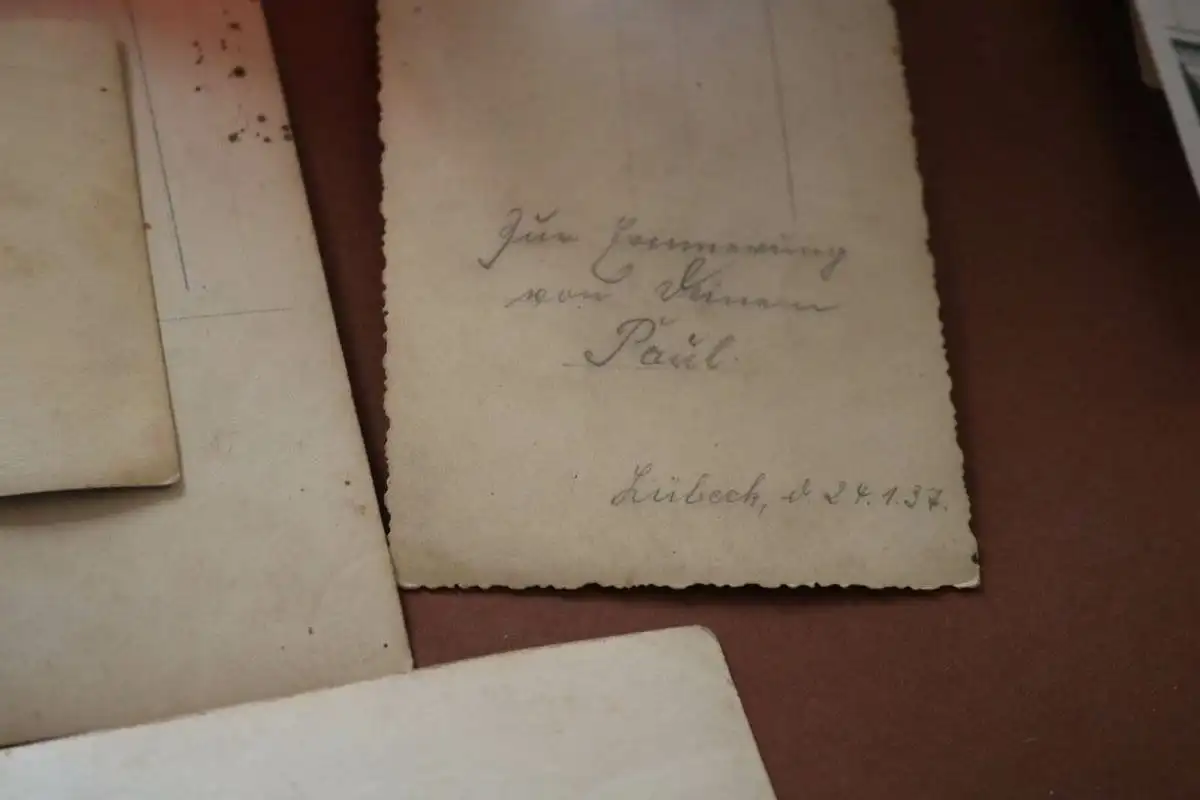 Zur Erinnerung
von Deinem
Paul.
Lübeck, d. 24.1.37.